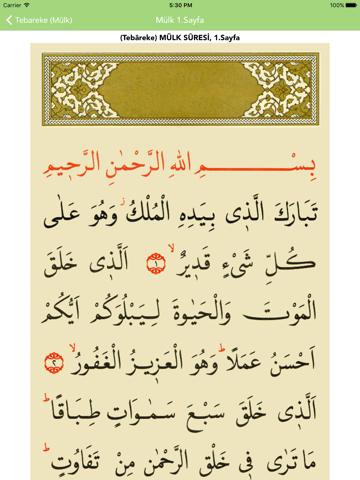 Carrier 5:30 PM 100%
Tebareke (Mülk) Mülk 1.Sayfa
(Tebâreke) MÜLK SÛRESİ, 1.Sayfa
بِسْمِ اللهِ الرَّحْمٰنِ الرَّحٖيمِ
تَبَارَكَ الَّذٖى بِيَدِهِ الْمُلْكُ ۘ وَهُوَ عَلٰى
كُلِّ شَیْءٍ قَدٖيرٌ ۙ ﴿١﴾ اَلَّذٖى خَلَقَ
الْمَوْتَ وَالْحَيٰوةَ لِيَبْلُوَكُمْ اَيُّكُمْ
اَحْسَنُ عَمَلًا ؕ وَهُوَ الْعَزٖيزُ الْغَفُورُ ۙ ﴿٢﴾
اَلَّذٖى خَلَقَ سَبْعَ سَمٰوَاتٍ طِبَاقًا ؕ
مَا تَرٰى فٖى خَلْقِ الرَّحْمٰنِ مِنْ تَفَاوُتٍ ؕ